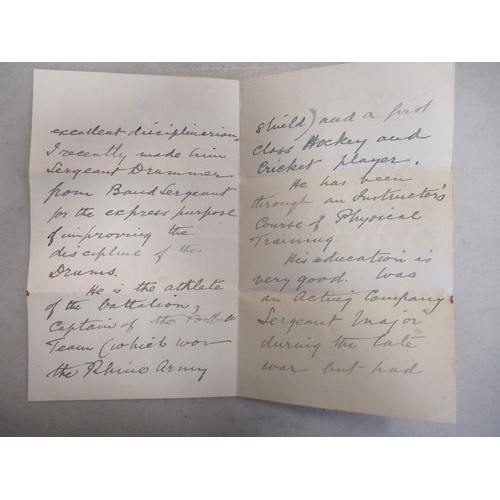 excellent disciplinarian.
I recently made him
Sergeant Drummer
from Band Sergeant
for the express purpose
of improving the
discipline of the
Drums.
He is the athlete
of the battalion,
Captain of the Football
Team (which won
the Rhine Army
shield) and a first
class Hockey and
Cricket player.
He has been
through an Instructor's
Course of Physical
Training.
His education is
very good. Was
an Acting Company
Sergeant Major
during the late
war but had